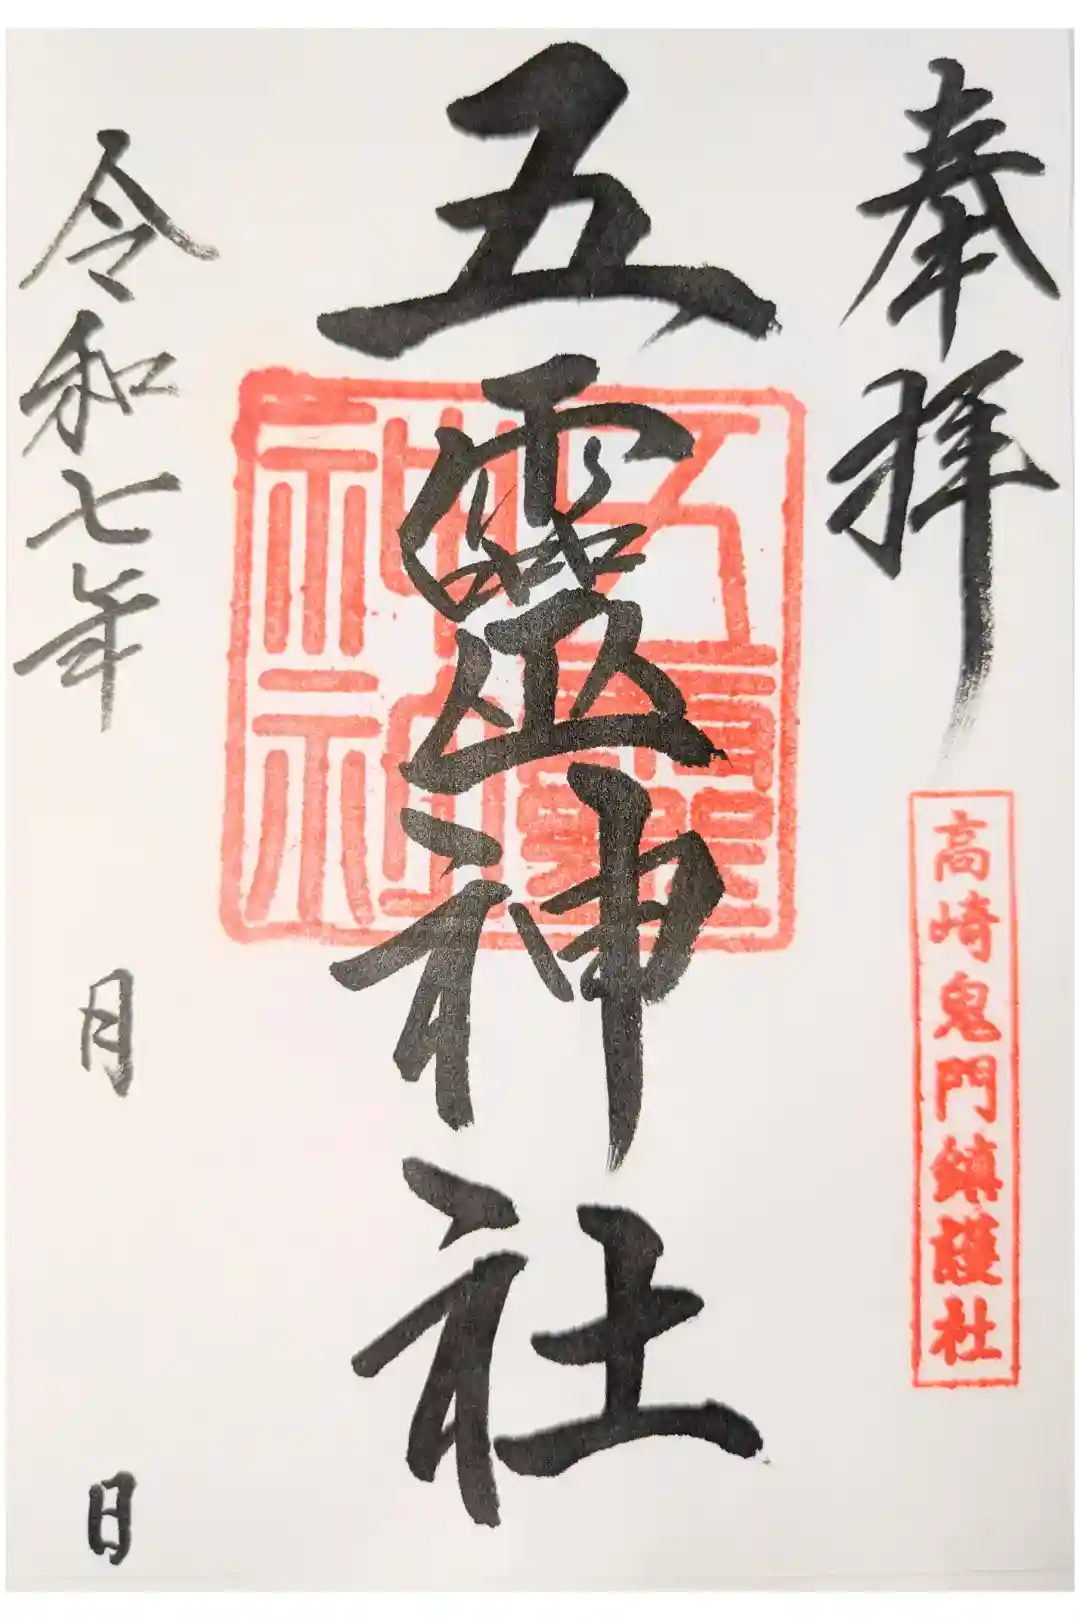 奉拝
高崎鬼門鎮護社
五靈神社
五靈神社神社
令和七年 月 日